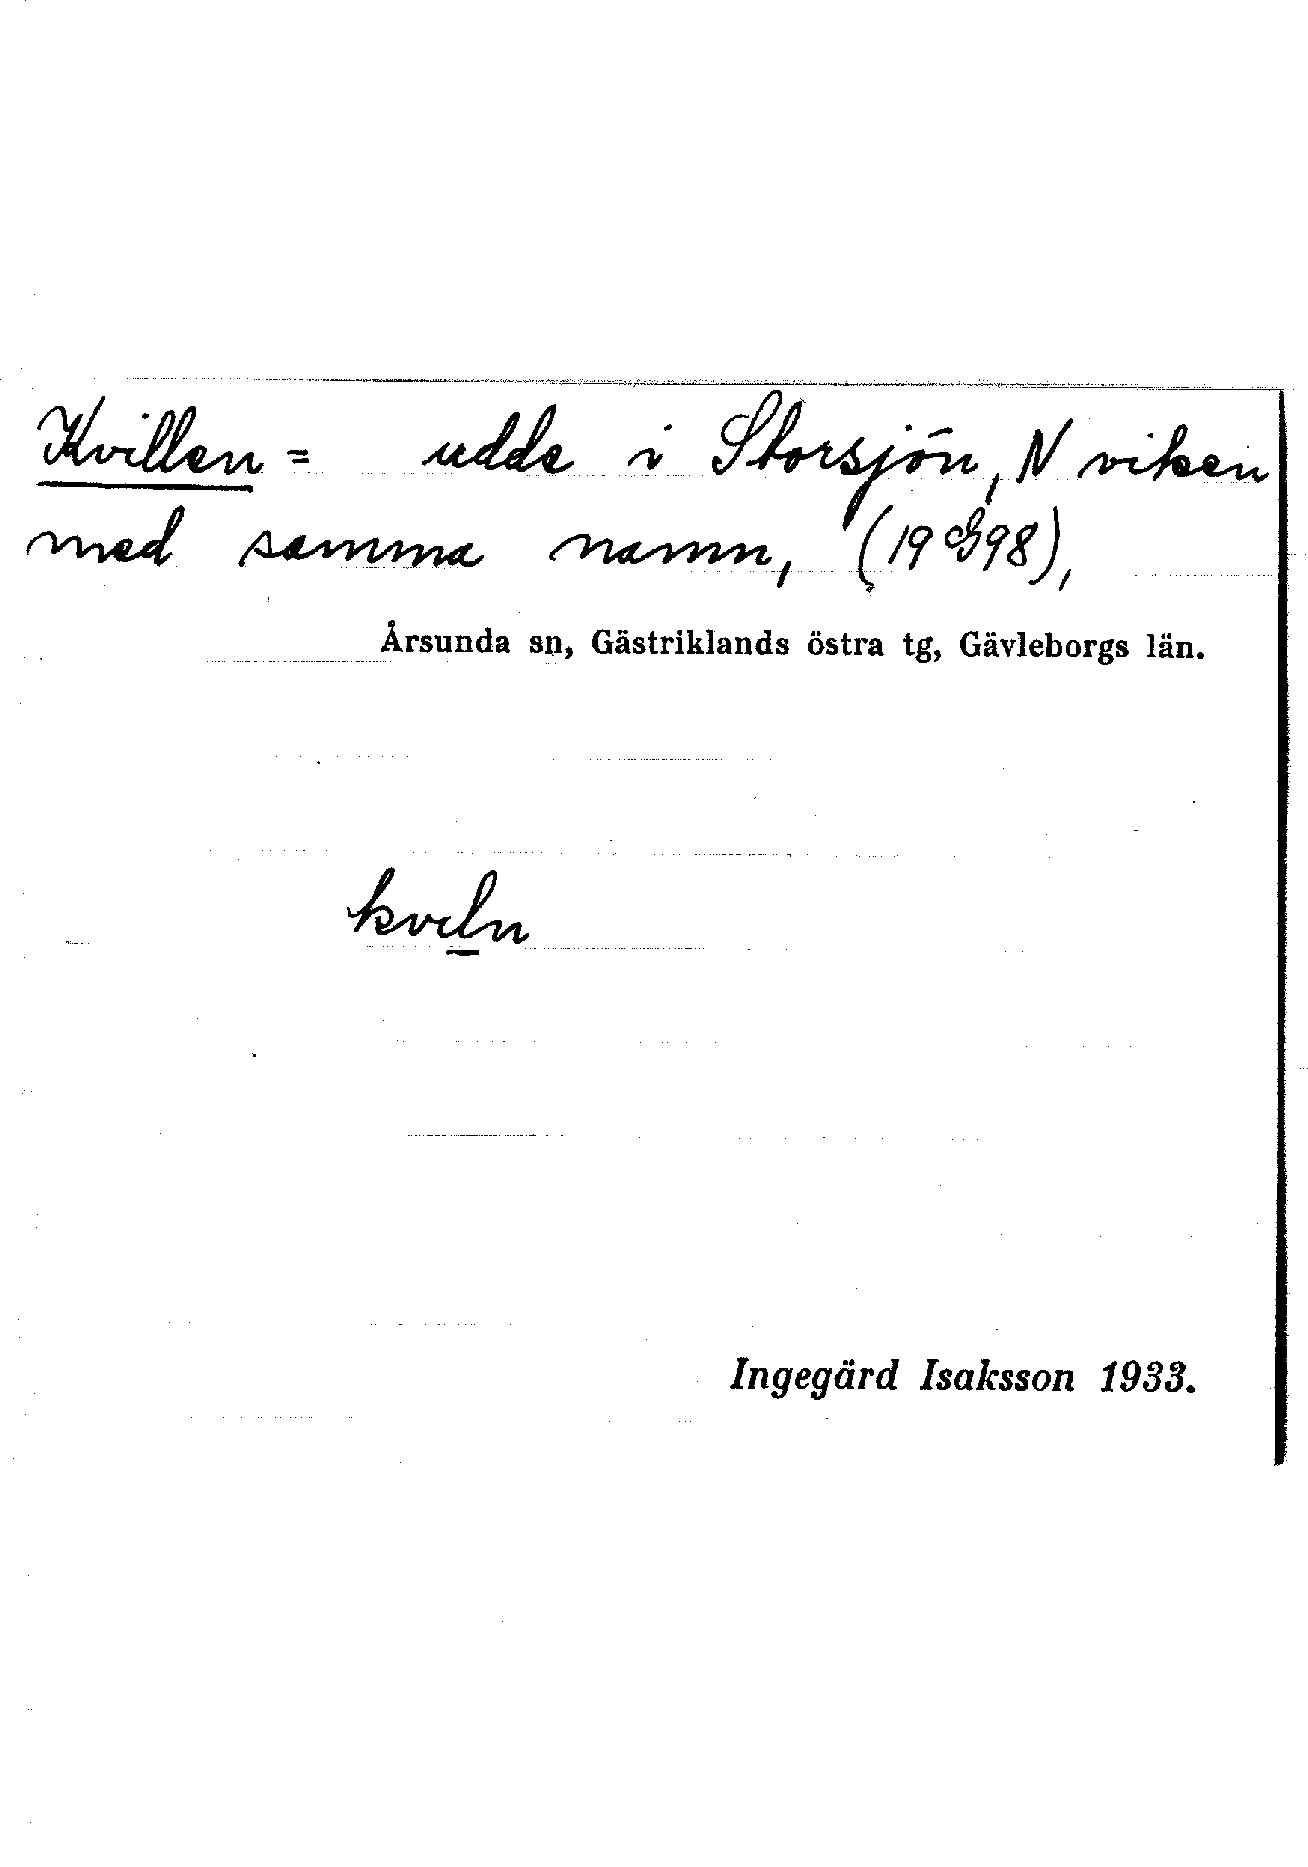 Kvillen = udde i Storsjön, N viken
med samma namn, (19 G 98),
Årsunda sn, Gästriklands östra tg, Gävleborgs län.
kvɩln
Ingegärd Isaksson 1933.